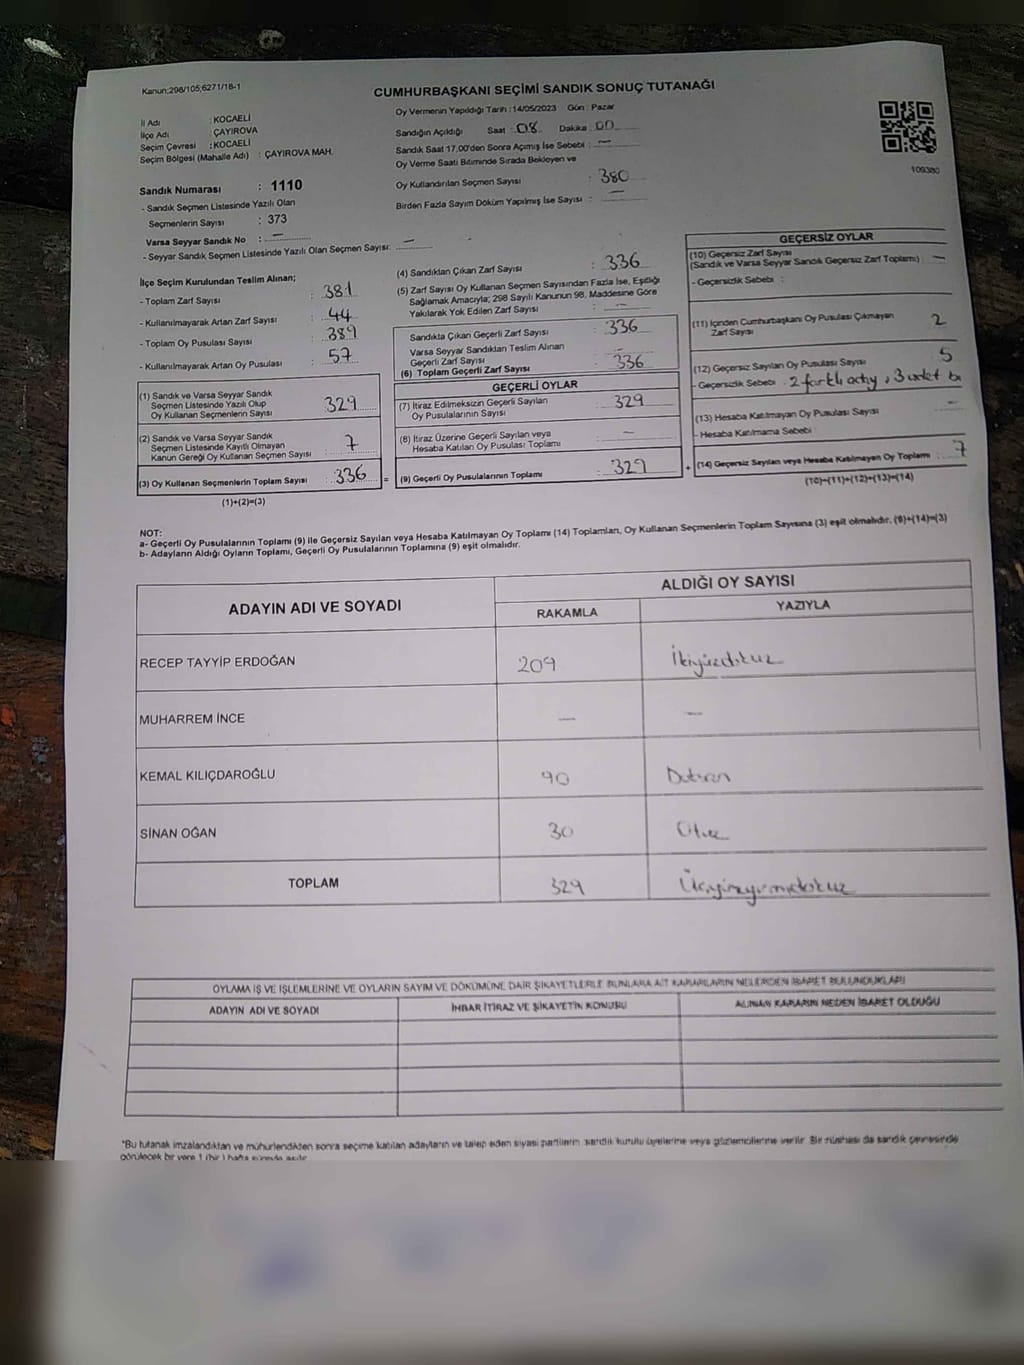 Kanun:298/105,6271/18-1
CUMHURBAŞKANI SEÇİMİ SANDIK SONUÇ TUTANAĞI
İl Adı : KOCAELİ
İlçe Adı : ÇAYIROVA
Seçim Çevresi : KOCAELİ
Seçim Bölgesi (Mahalle Adı) : ÇAYIROVA MAH.
Oy Vermenin Yapıldığı Tarih : 14/05/2023 Gün : Pazar
Sandığın Açıldığı Saat : 08 Dakika : 00
Sandık Saat 17.00'den Sonra Açımış İse Sebebi : —
Oy Verme Saati Bitiminde Sırada Bekleyen ve
Oy Kullandırılan Seçmen Sayısı : 380
Birden Fazla Sayım Döküm Yapılmış İse Sayısı : —
109380
Sandık Numarası : 1110
- Sandık Seçmen Listesinde Yazılı Olan
Seçmenlerin Sayısı : 373
Varsa Seyyar Sandık No : —
- Seyyar Sandık Seçmen Listesinde Yazılı Olan Seçmen Sayısı: —
İlçe Seçim Kurulundan Teslim Alınan;
- Toplam Zarf Sayısı : 381
- Kullanılmayarak Artan Zarf Sayısı : 44
- Toplam Oy Pusulası Sayısı : 389
- Kullanılmayarak Artan Oy Pusulası : 57
(1) Sandık ve Varsa Seyyar Sandık
Seçmen Listesinde Yazılı Olup
Oy Kullanan Seçmenlerin Sayısı : 329
(2) Sandık ve Varsa Seyyar Sandık
Seçmen Listesinde Kayıtlı Olmayan
Kanun Gereği Oy Kullanan Seçmen Sayısı : 7
(3) Oy Kullanan Seçmenlerin Toplam Sayısı : 336
(1)+(2)=(3)
(4) Sandıktan Çıkan Zarf Sayısı : 336
(5) Zarf Sayısı Oy Kullanan Seçmen Sayısından Fazla İse, Eşitliği
Sağlamak Amacıyla; 298 Sayılı Kanunun 98. Maddesine Göre
Yakılarak Yok Edilen Zarf Sayısı : —
Sandıkta Çıkan Geçerli Zarf Sayısı : 336
Varsa Seyyar Sandıktan Teslim Alınan
Geçerli Zarf Sayısı : —
(6) Toplam Geçerli Zarf Sayısı : 336
GEÇERLİ OYLAR
(7) İtiraz Edilmeksizin Geçerli Sayılan
Oy Pusulalarının Sayısı : 329
(8) İtiraz Üzerine Geçerli Sayılan veya
Hesaba Katılan Oy Pusulası Toplamı : —
= (9) Geçerli Oy Pusulalarının Toplamı : 329
GEÇERSİZ OYLAR
(10) Geçersiz Zarf Sayısı
(Sandık ve Varsa Seyyar Sandık Geçersiz Zarf Toplamı) : —
- Geçersizlik Sebebi :
(11) İçinden Cumhurbaşkanı Oy Pusulası Çıkmayan
Zarf Sayısı 2
(12) Geçersiz Sayılan Oy Pusulası Sayısı 5
- Geçersizlik Sebebi : 2 farklı aday, 3 adet
(13) Hesaba Katılmayan Oy Pusulası Sayısı —
- Hesaba Katılmama Sebebi :
+ (14) Geçersiz Sayılan veya Hesaba Katılmayan Oy Toplamı : 7
(10)+(11)+(12)+(13)=(14)
NOT:
a- Geçerli Oy Pusulalarının Toplamı (9) ile Geçersiz Sayılan veya Hesaba Katılmayan Oy Toplamı (14) Toplamları, Oy Kullanan Seçmenlerin Toplam Sayısına (3) eşit olmalıdır. (9)+(14)=(3)
b- Adayların Aldığı Oyların Toplamı, Geçerli Oy Pusulalarının Toplamına (9) eşit olmalıdır.
ADAYIN ADI VE SOYADI
ALDIĞI OY SAYISI
RAKAMLA YAZIYLA
RECEP TAYYİP ERDOĞAN 209 İkiyüzdokuz
MUHARREM İNCE — —
KEMAL KILIÇDAROĞLU 90 Doksan
SİNAN OĞAN 30 Otuz
TOPLAM 329 Üçyüzyirmidokuz
OYLAMA İŞ VE İŞLEMLERİNE VE OYLARIN SAYIM VE DÖKÜMÜNE DAİR ŞİKAYETLERLE BUNLARA AİT KARARLARIN NELERDEN İBARET BULUNDUKLARI
ADAYIN ADI VE SOYADI İHBAR İTİRAZ VE ŞİKAYETİN KONUSU ALINAN KARARIN NEDEN İBARET OLDUĞU
*Bu tutanak imzalandıktan ve mühürlendikten sonra seçime katılan adayların ve talep eden siyasi partilerin sandık kurulu üyelerine veya gözlemcilerine verilir. Bir nüshası da sandık çevresinde
görülecek bir yere 1 (bir) hafta süreyle asılır.